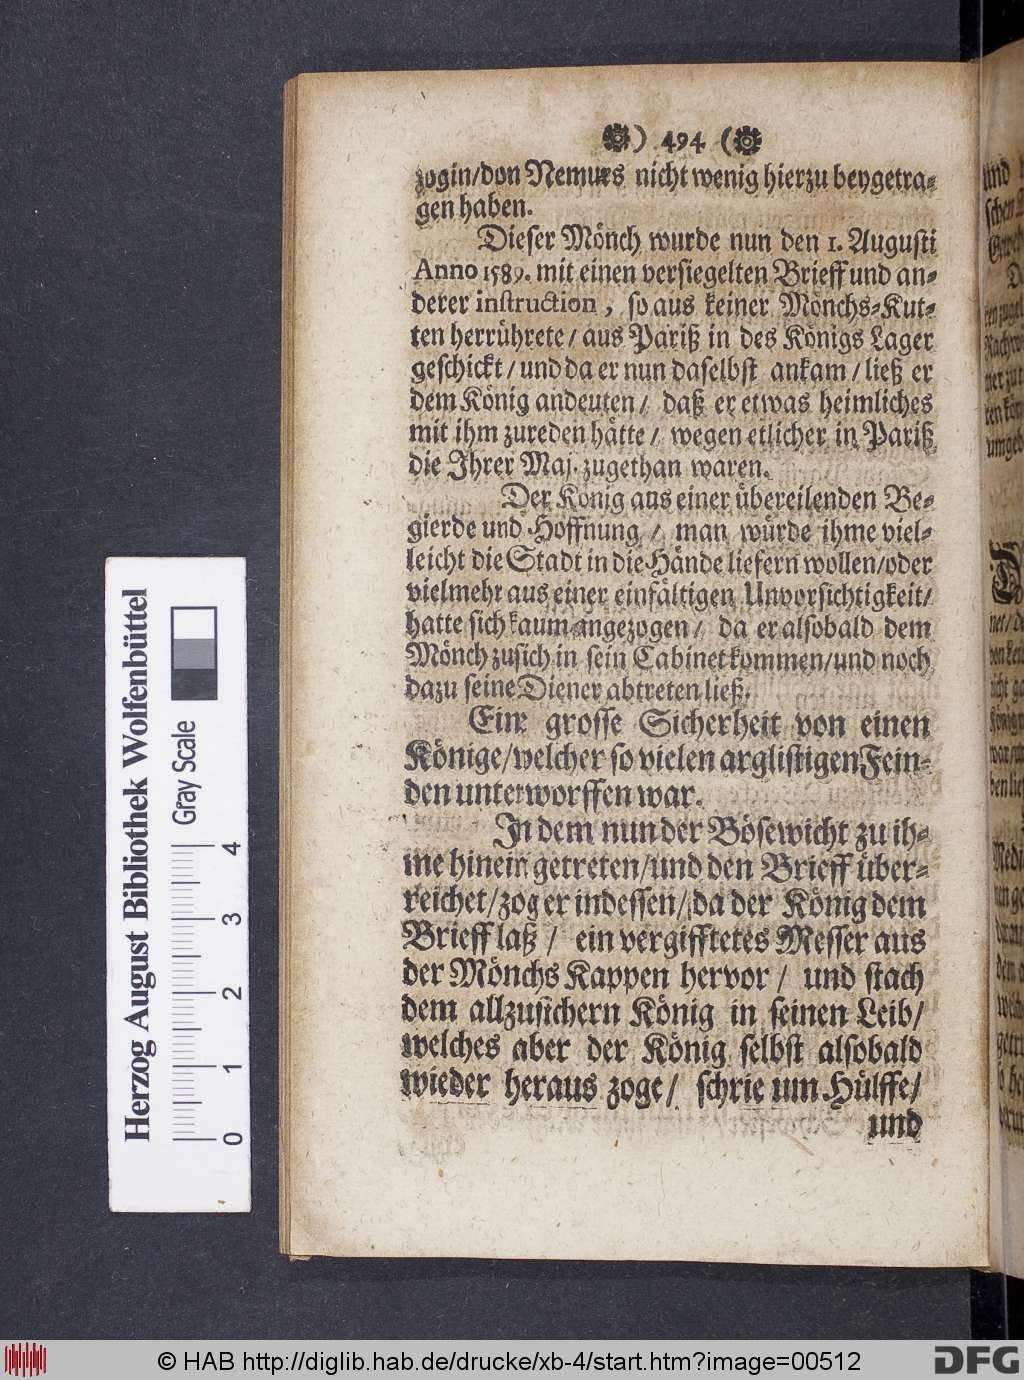 ) 494 (
zogin/von Nemurs nicht wenig hierzu beygetra-
gen haben.
Dieser Mönch wurde nun den 1. Augusti
Anno 1589. mit einen versiegelten Brieff und an-
derer instruction, so aus keiner Mönchs-Kut-
ten herrührete/ aus Pariß in des Königs Lager
geschickt/ und da er nun daselbst ankam/ ließ er
dem König andeuten/ daß er etwas heimliches
mit ihm zureden hätte/ wegen etlicher in Pariß
die Ihrer Maj. zugethan waren.
Der König aus einer übereilenden Be-
gierde und Hoffnung/ man würde ihme viel-
leicht die Stadt in die Hände liefern wollen/oder
vielmehr aus einer einfältigen Unvorsichtigkeit/
hatte sich kaum angezogen/ da er alsobald dem
Mönch zusich in sein Cabinet kommen/und noch
dazu seine Diener abtreten ließ.
Eine grosse Sicherheit von einen
Könige/welcher so vielen arglistigen Fein-
den unterworffen war.
In dem nun der Bösewicht zu ih-
me hinein getreten/und den Brieff über-
reichet/zog er indessen/ da der König dem
Brieff laß/ ein vergifftetes Messer aus
der Mönchs Kappen hervor/ und stach
dem allzusichern König in seinen Leib/
welches aber der König selbst alsobald
wieder heraus zoge/ schrie um Hülffe/
und
Herzog August Bibliothek Wolfenbüttel
Gray Scale
0 1 2 3 4
© HAB http://diglib.hab.de/drucke/xb-4/start.htm?image=00512
DFG